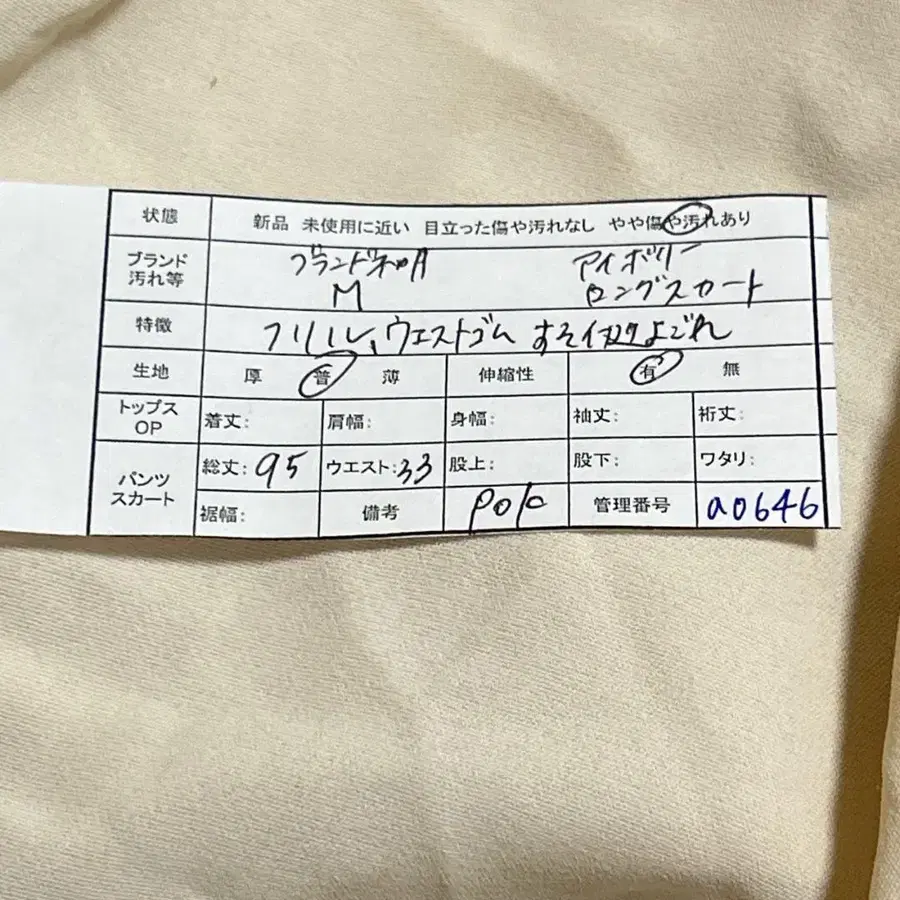 状態 新品 未使用に近い 目立った傷や汚れなし やや傷や汚れあり
ブランド 汚れ等 ブランドネ アイボリー
M ロングスカート
特徴 フリル、ウエストゴム すそ よごれ
生地 厚 普 薄 伸縮性 有 無
トップス OP 着丈: 肩幅: 身幅: 袖丈: 裄丈:
パンツ スカート 総丈:95 ウエスト:33 股上: 股下: ワタリ:
裾幅: 備考 管理番号 a0646